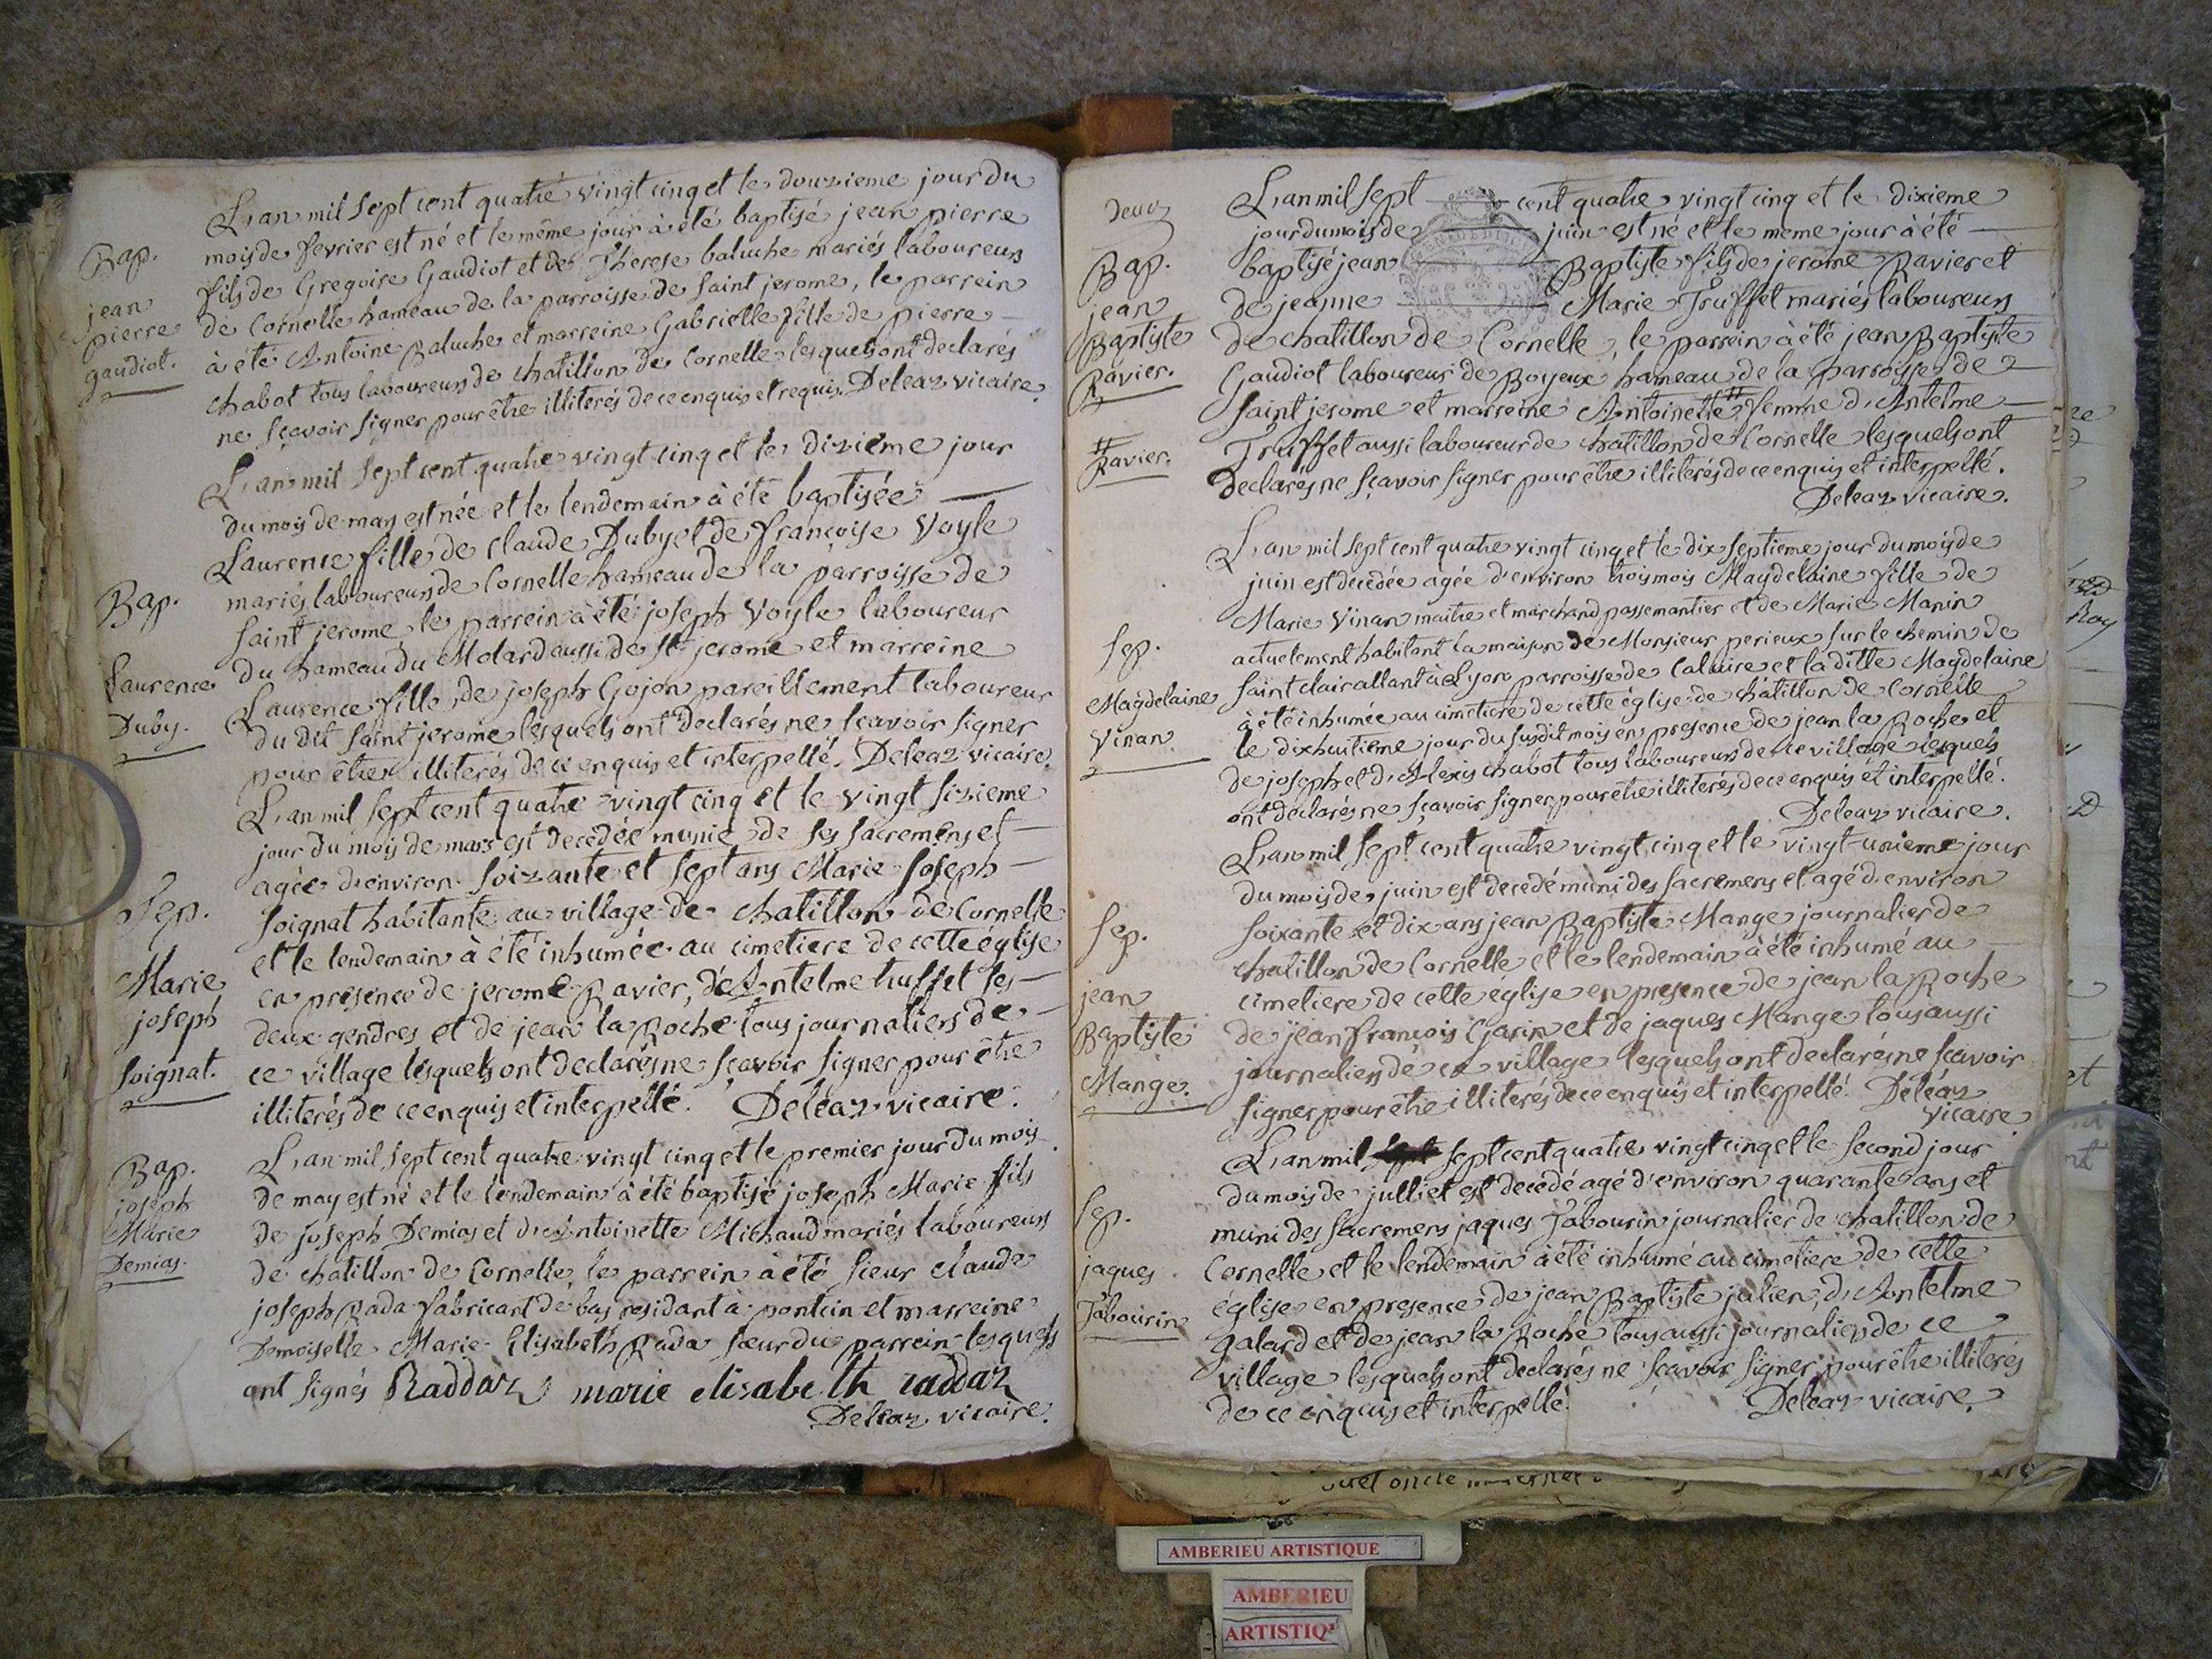 L'an mil sept cent quatre vingt cinq et le douzieme jour du
mois de fevrier est né et le même jour à été baptisé jean pierre
fils de Gregoire Gaudiot et de Therese baluche mariés laboureurs
de Cornelle hameau de la parroisse de saint jerome, le parrein
à été Antoine Baluche et marreine Gabrielle fille de pierre
chabot tous laboureurs de chatillon de Cornelle lesquels ont declarés
ne sçavoir signer pour être illiterés de ce enquis et requis. Deleaz vicaire.
Bap.
jean
pierre
gaudiot.
L'an mil sept cent quatre vingt cinq et le dizième jour
du mois de may est née et le lendemain à été baptisée
Laurence fille de Claude Duby et de françoise Voyle
mariés laboureurs de Cornelle hameau de la parroisse de
saint jerome, le parrein à été joseph Voyle laboureur
du hameau du Molard aussi de st jerome et marreine
Laurence fille de joseph Gojon pareillement laboureur
du dit saint jerome lesquels ont declarés ne sçavoir signer
pour être illiterés de ce enquis et interpellé. Deleaz vicaire.
Bap.
Laurence
Duby.
L'an mil sept cent quatre vingt cinq et le vingt sizieme
jour du mois de mars est decedée munie de ses sacremens et
agée d'environ soizante et sept ans Marie Joseph
soignat habitante au village de chatillon de Cornelle
et le lendemain à été inhumée au cimetiere de cette église
en présence de jerome Ravier, d'Antelme truffet ses
deux gendres et de jean la Roche tous journaliers de
ce village lesquels ont declarés ne sçavoir signer pour être
illiterés de ce enquis et interpellé. Deleaz vicaire.
Sep.
Marie
joseph
soignat.
L'an mil sept cent quatre vingt cinq et le premier jour du mois
de may est né et le lendemain à été baptisé joseph Marie fils
de joseph Demias et d'Antoinette Michaud mariés laboureurs
de châtillon de Cornelle, le parrein à été sieur claude
joseph Rada fabricant de bas residant à poncin et marreine
Demoiselle Marie Elisabeth Rada sœur du parrein lesquels
ont signés Raddaz marie elisabeth raddaz
Deleaz vicaire.
Bap.
joseph
Marie
Demias.
deux
L'an mil sept cent quatre vingt cinq et le dixieme
jour du mois de juin est né et le meme jour à été
baptisé jean Baptiste fils de jerome Ravier et
de jeanne Marie Truffet mariés laboureurs
de chatillon de Cornelle, le parrein à été jean Baptiste
Gaudiot laboureur de Boyeux hameau de la parroisse de
saint jerome et marreine Antoinette # femme d'Antelme
Truffet aussi laboureur de chatillon de Cornelle lesquels ont
declarés ne sçavoir signer pour être illiterés de ce enquis et interpellé.
Deleaz vicaire.
Bap.
jean
Baptiste
Ravier.
#
Ravier.
L'an mil sept cent quatre vingt cinq et le dix septieme jour du mois de
juin est decedée agée d'environ trois mois Magdelaine fille de
Marie Vinan maitre et marchand passemantier et de Marie Manin
actuelement habitant la maison de Monsieur perieux sur le chemin de
saint clair allant à Lyon parroisse de Caluire et la ditte Magdelaine
à été inhumée au cimetiere de cette église de châtillon de Cornelle
le dixhuitieme jour du susdit mois en presence de jean la Roche et
de joseph et d'Alexis chabot tous laboureurs de ce village lesquels
ont declarés ne sçavoir signer pour être illiterés de ce enquis et interpellé.
Deleaz vicaire.
Sep.
Magdelaine
Vinan
L'an mil sept cent quatre vingt cinq et le vingt-unieme jour
du mois de juin est decedé muni des sacremens et agé d'environ
soixante et dix ans jean Baptiste Mange journalier de
chatillon de Cornelle et le lendemain à été inhumé au
cimetiere de cette eglise en presence de jean la Roche
de jean françois Garin et de jaques Mange tous aussi
journaliers de ce village lesquels ont declarés ne sçavoir
signer pour être illiterés de ce enquis et interpellé. Deléaz
vicaire
Sep.
jean
Baptiste
Mange.
L'an mil sept cent quatre vingt cinq et le second jour
du mois de julliet est decedé agé d'environ quarante ans et
muni des sacremens jaques Tabourin journalier de chatillon de
Cornelle et le lendemain à été inhumé au cimetiere de cette
église en presence de jean Baptiste julien, d'Antelme
galard et de jean la Roche tous aussi journaliers de ce
village lesquels ont declarés ne sçavoir signer pour être illiterés
de ce enquis et interpellé. Deleaz vicaire.
Sep.
jaques
Tabourin
AMBERIEU ARTISTIQUE
AMBERIEU
ARTISTIQ